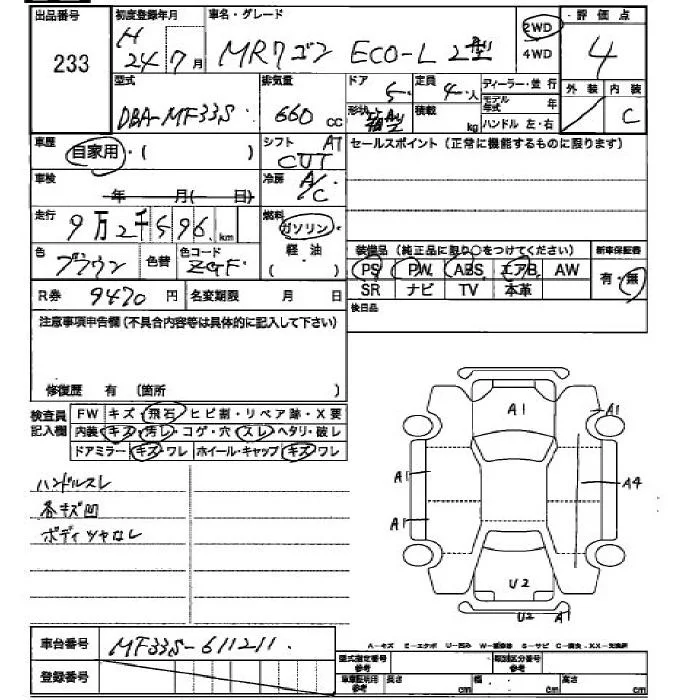 出品番号 初度登録年月 車名・グレード 2WD 評価点
233 H 24年7月 MRワゴン ECO-L 2型 4WD 4
型式 排気量 ドア 5 定員 4人 ディーラー・並行 外装 内装
DBA-MF33S 660cc 形状 箱型 積載 kg モデル年式 年 C
ハンドル 左・右
車歴 自家用・( ) シフト AT セールスポイント(正常に機能するものに限ります)
CVT
車検 年 月( 日) 冷房 A/C
走行 9万2千596km 燃料 ガソリン・軽油 ( )
装備品(純正品に限り○をつけてください) 新車保証書
色 ブラウン 色替 色コード ZGF PS PW ABS エアB AW 有・無
R券 9470円 名変期限 月 日 SR ナビ TV 本革
注意事項申告欄(不具合内容等は具体的に記入して下さい) 後日品
修復歴 有 (箇所 )
検査員記入欄 FW キズ・飛石・ヒビ割・リペア跡・X要
内装・キズ・汚レ・コゲ・穴・スレ・ヘタリ・破レ
ドアミラー・キズ・ワレ・ホイール・キャップ・キズ・ワレ
A1
A1
A1
A4
A1
U2
U2
A1
ハンドルスレ
各キズ凹
ボディツヤ無し
車台番号 MF33S-611211
登録番号
型式指定番号 参考 類別区分番号 参考
車庫証明用 参考 長さ cm 幅 cm 高さ cm